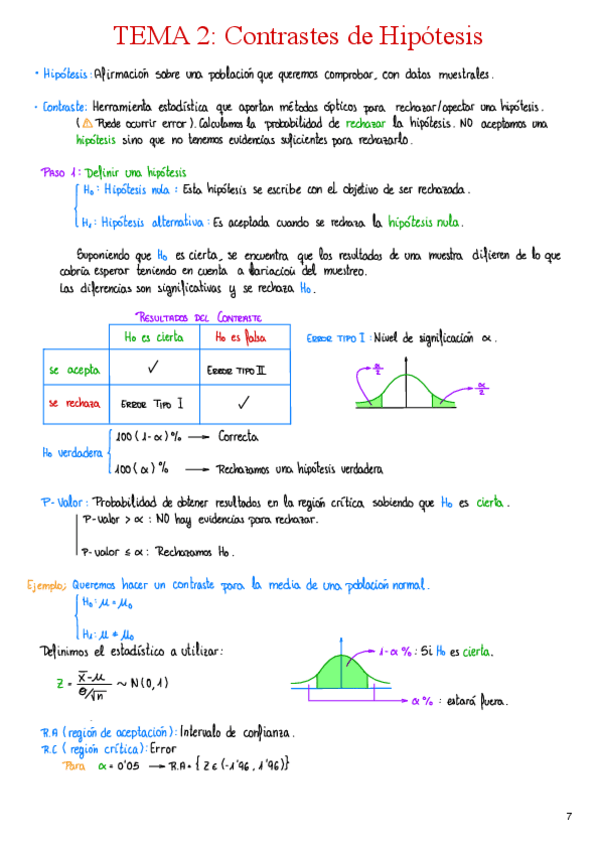 TEMA 2: Contrastes de Hipótesis
• Hipótesis: Afirmación sobre una población que queremos comprobar, con datos muestrales.
• Contraste: Herramienta estadística que aportan métodos ópticos para rechazar/apectar una hipótesis.
(⚠ Puede ocurrir error). Calculamos la probabilidad de rechazar la hipótesis. NO aceptamos una
hipótesis sino que no tenemos evidencias suficientes para rechazarlo.
PASO 1: Definir una hipótesis
H₀: Hipótesis nula: Esta hipótesis se escribe con el objetivo de ser rechazada.
H₁: Hipótesis alternativa: Es aceptada cuando se rechaza la hipótesis nula.
Suponiendo que H₀ es cierta, se encuentra que los resultados de una muestra difieren de lo que
cabría esperar teniendo en cuenta a variación del muestreo.
Las diferencias son significativas y se rechaza H₀.
RESULTADOS DEL CONTRASTE
H₀ es cierta H₀ es falsa
ERROR TIPO I: Nivel de significación α.
se acepta ✓ ERROR TIPO II
α/2 α/2
se rechaza ERROR TIPO I ✓
H₀ verdadera
100(1-α)% → Correcta
100(α)% → Rechazamos una hipótesis verdadera
P-Valor: Probabilidad de obtener resultados en la región crítica sabiendo que H₀ es cierta.
P-valor > α: NO hay evidencias para rechazar.
P-valor ≤ α: Rechazamos H₀.
Ejemplo; Queremos hacer un contraste para la media de una población normal.
H₀: μ = μ₀
H₁: μ ≠ μ₀
Definimos el estadístico a utilizar:
1-α%: Si H₀ es cierta.
Z = (x̄-μ)/(σ/√n) ~ N(0,1)
α%: estará fuera.
R.A (región de aceptación): Intervalo de confianza.
R.C (región crítica): Error
Para α = 0'05 → R.A = {Z ∈ (-1'96, 1'96)}
7